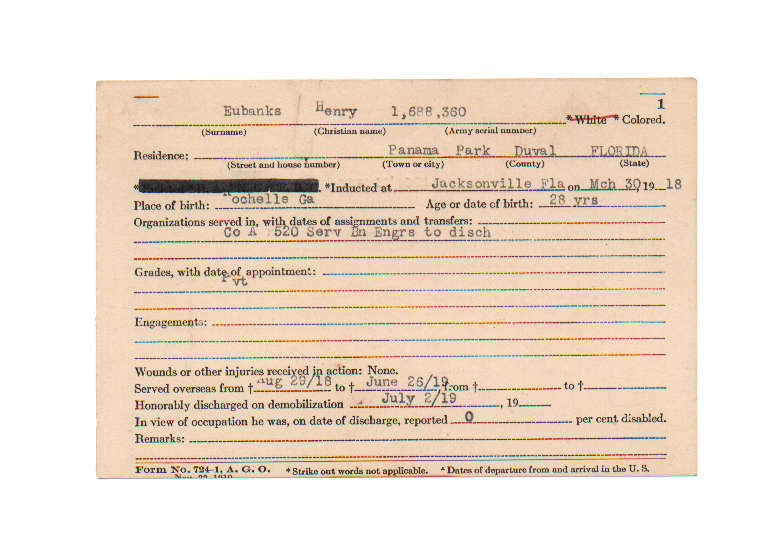 1
Eubanks Henry 1,688,360 *White * Colored.
(Surname) (Christian name) (Army serial number)
Residence: Panama Park Duval FLORIDA
(Street and house number) (Town or city) (County) (State)
* *Inducted at Jacksonville Fla on Mch 30 19 18
Place of birth: Rochelle Ga Age or date of birth: 28 yrs
Organizations served in, with dates of assignments and transfers:
Co A 520 Serv Bn Engrs to disch
Grades, with date of appointment:
Pvt
Engagements:
Wounds or other injuries received in action: None.
Served overseas from † Aug 29/18 to † June 26/19, from † to †
Honorably discharged on demobilization July 2/19, 19
In view of occupation he was, on date of discharge, reported 0 per cent disabled.
Remarks:
Form No. 724-1, A. G. O. *Strike out words not applicable. Dates of departure from and arrival in the U. S.